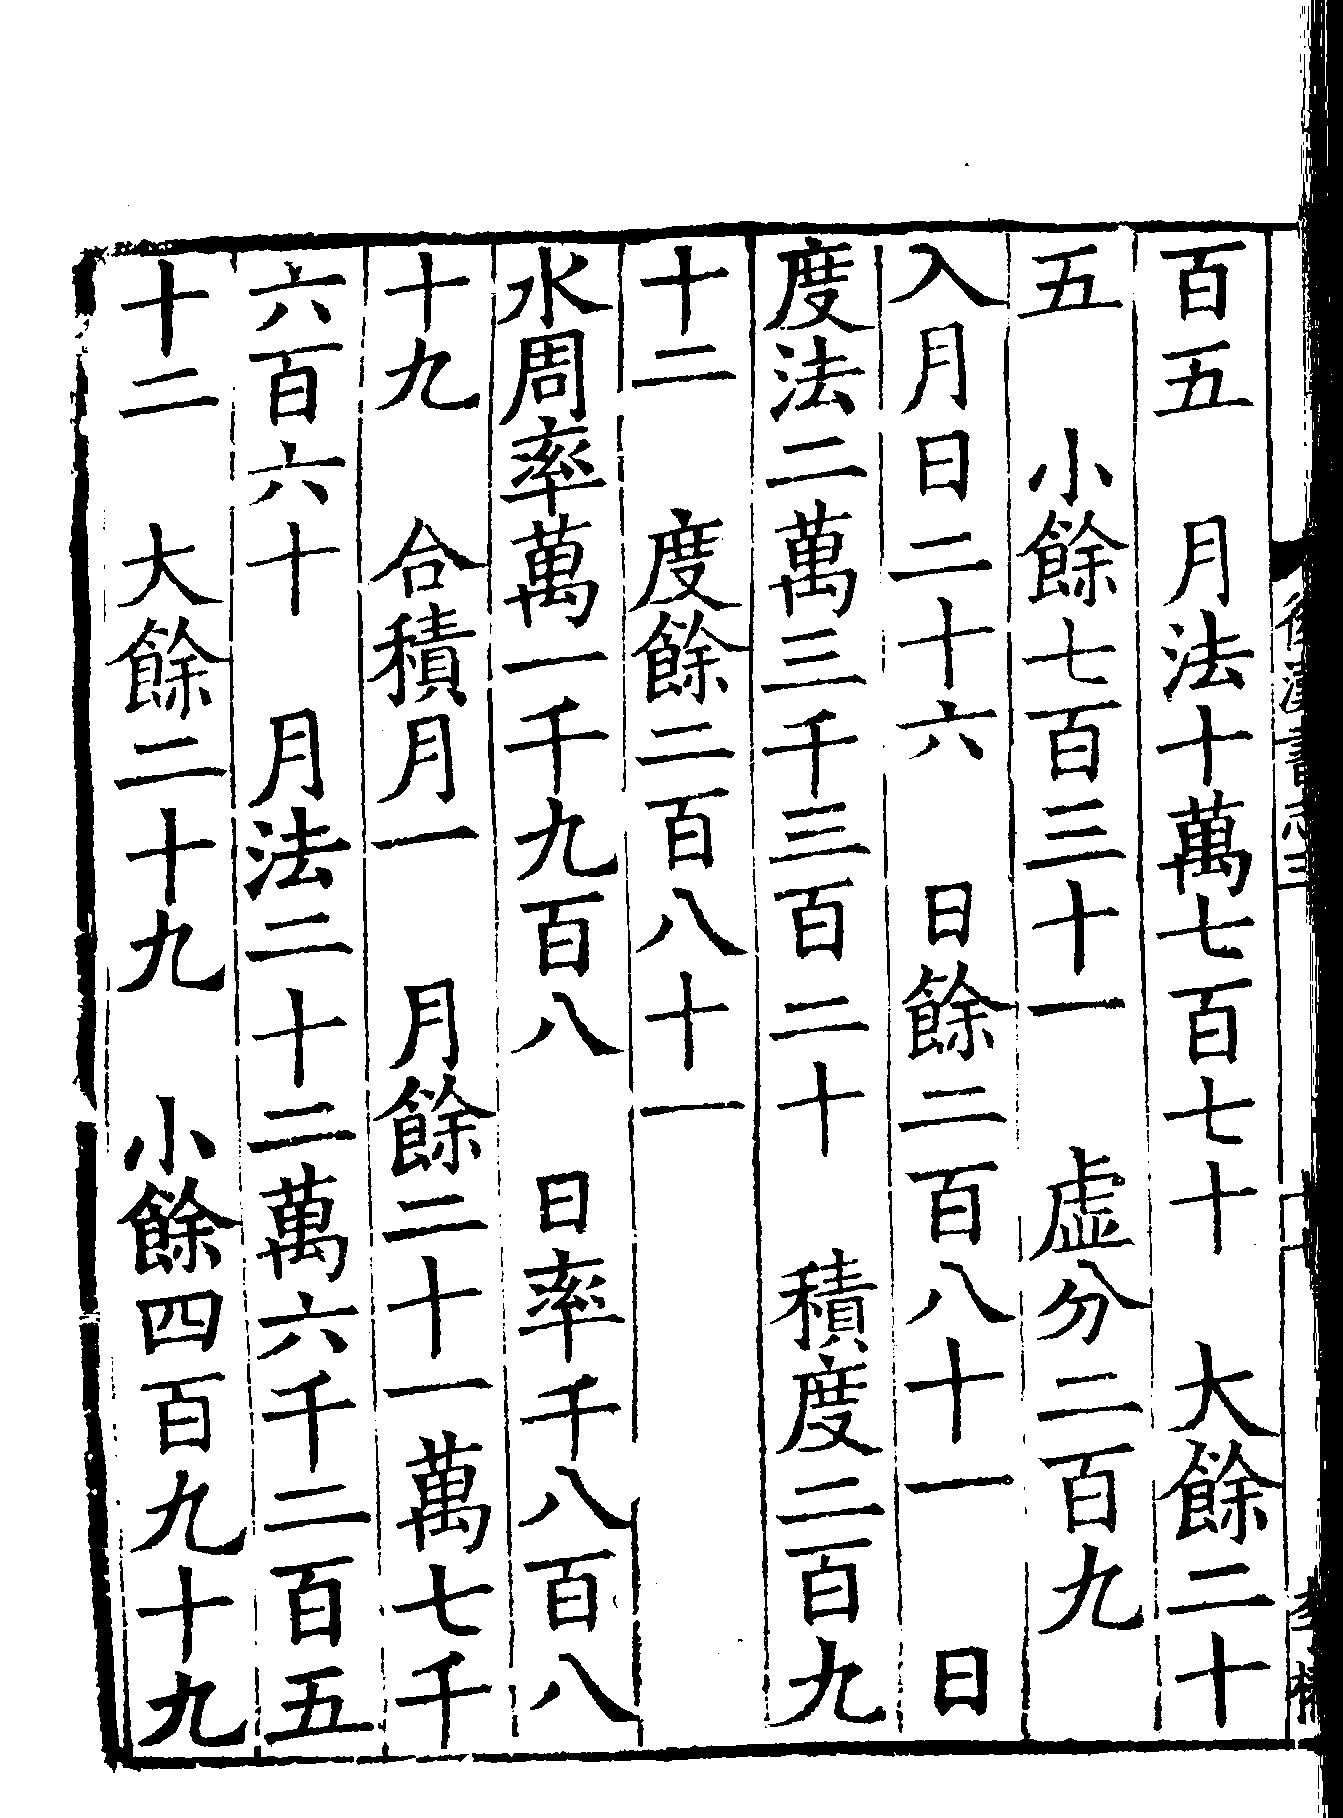 百五　月法十萬七百七十　大餘二十
五　小餘七百三十一　虛分二百九
入月日二十六　日餘二百八十一　日
度法二萬三千三百二十　積度二百九
十二　度餘二百八十一
水周率萬一千九百八　日率千八百八
十九　合積月一　月餘二十一萬七千
六百六十　月法二十二萬六千二百五
十二　大餘二十九　小餘四百九十九